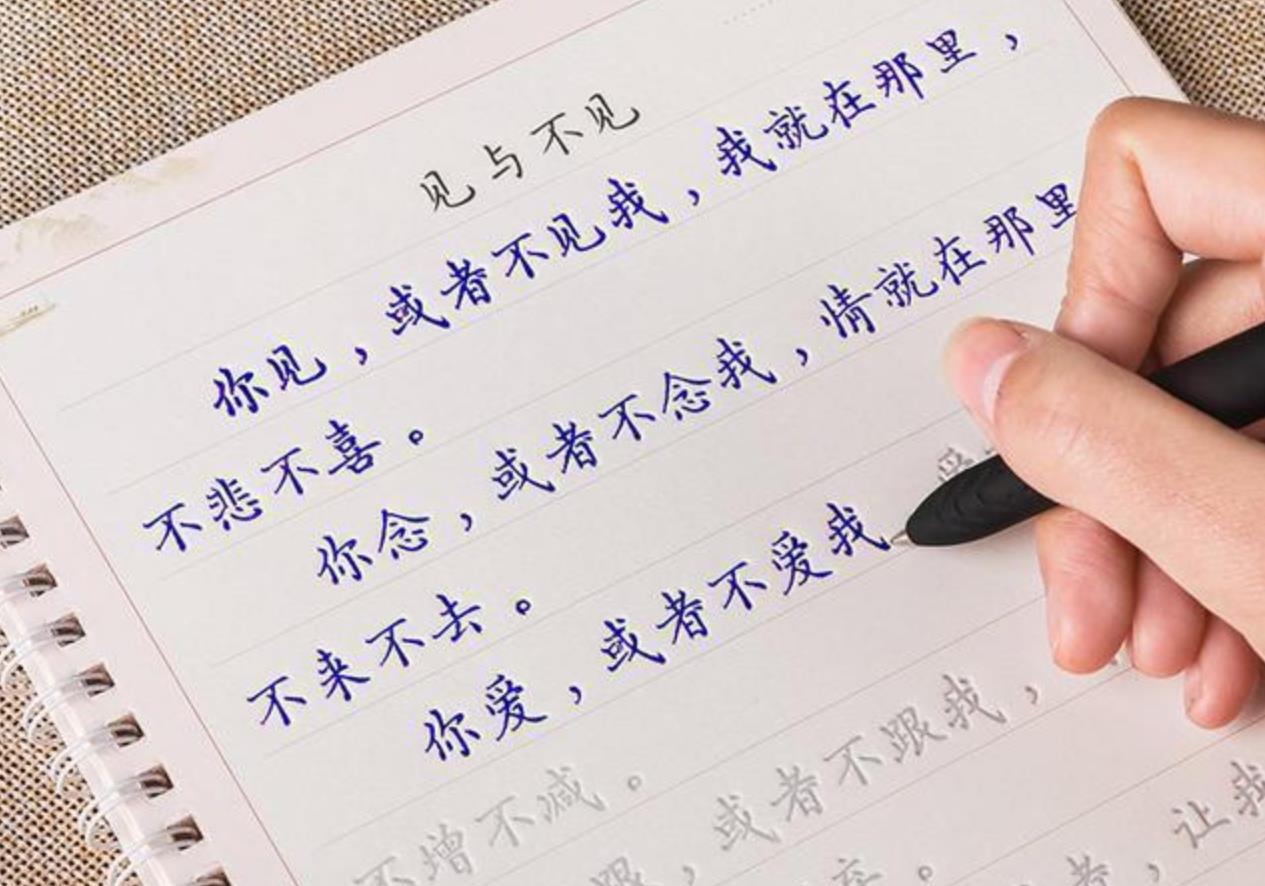 见与不见
你见，或者不见我，我就在那里，
不悲不喜。
你念，或者不念我，情就在那里
不来不去。
你爱，或者不爱我
爱
不增不减。
跟，或者不跟我，
弃。
者，让我